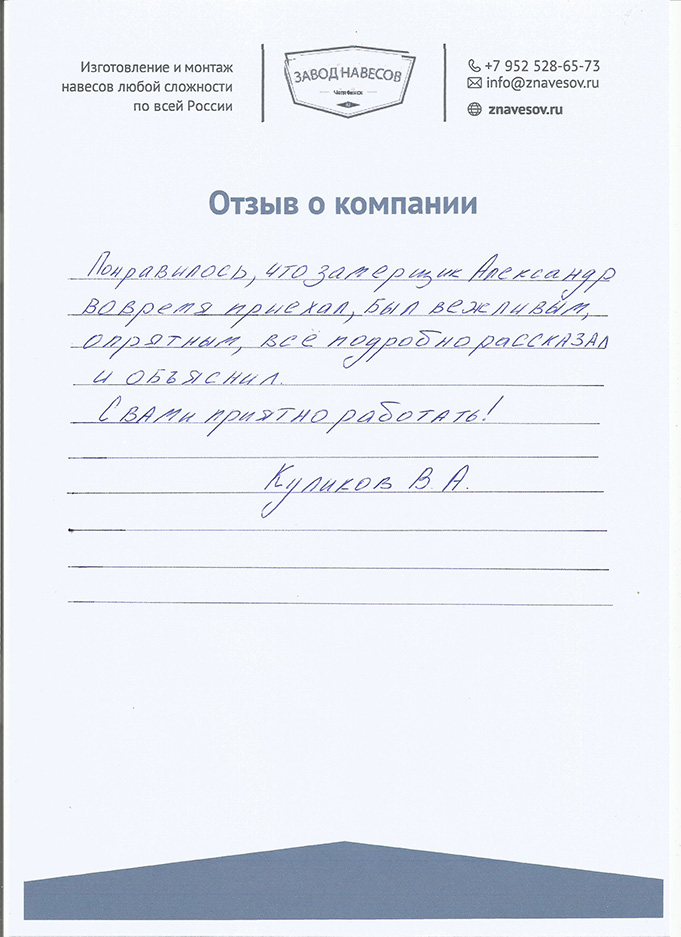 Изготовление и монтаж
навесов любой сложности
по всей России
ЗАВОД НАВЕСОВ
Челябинск
+7 952 528-65-73
info@znavesov.ru
znavesov.ru
Отзыв о компании
Понравилось, что замерщик Александр
вовремя приехал, был вежливым,
опрятным, всё подробно рассказал
и объяснил.
С вами приятно работать!
Куликов В. А.